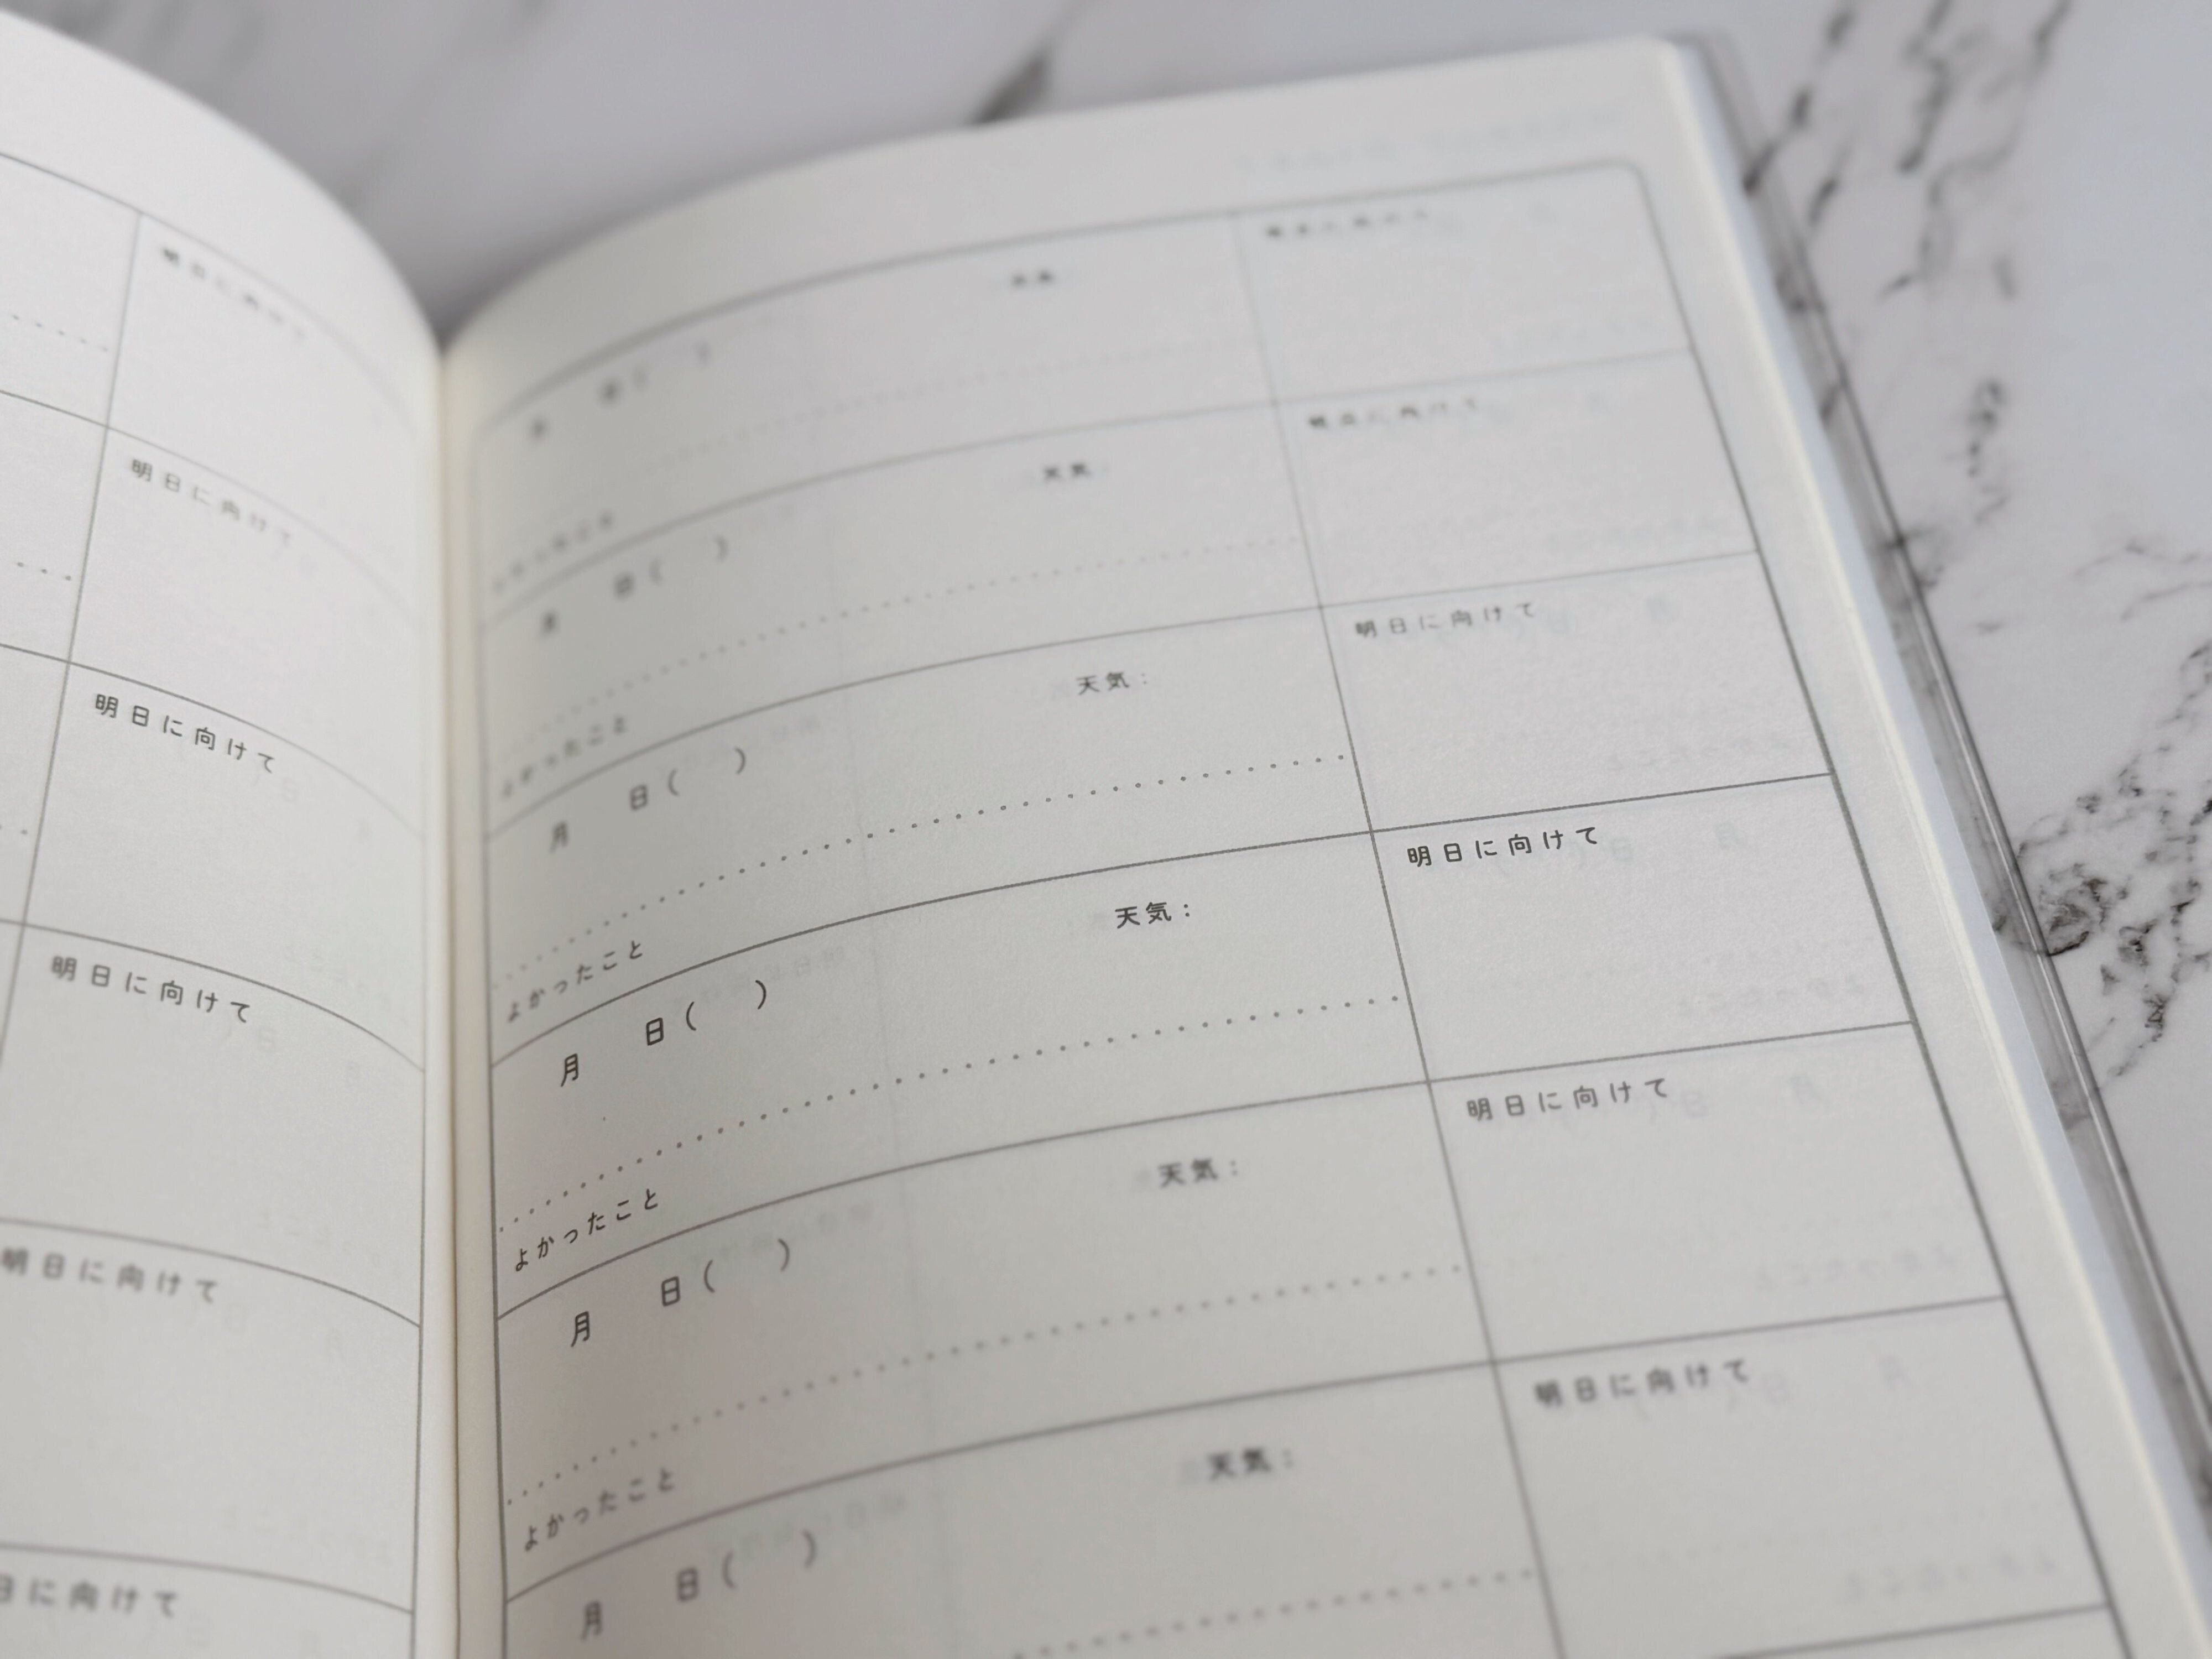 明日に向けて
明日に向けて
明日に向けて
明日に向けて
日に向けて
天気
明日に向けて
月 日( )
よかったこと
天気:
明日に向けて
月 日( )
よかったこと
天気:
明日に向けて
月 日( )
よかったこと
天気:
明日に向けて
月 日( )
よかったこと
天気:
明日に向けて
月 日( )